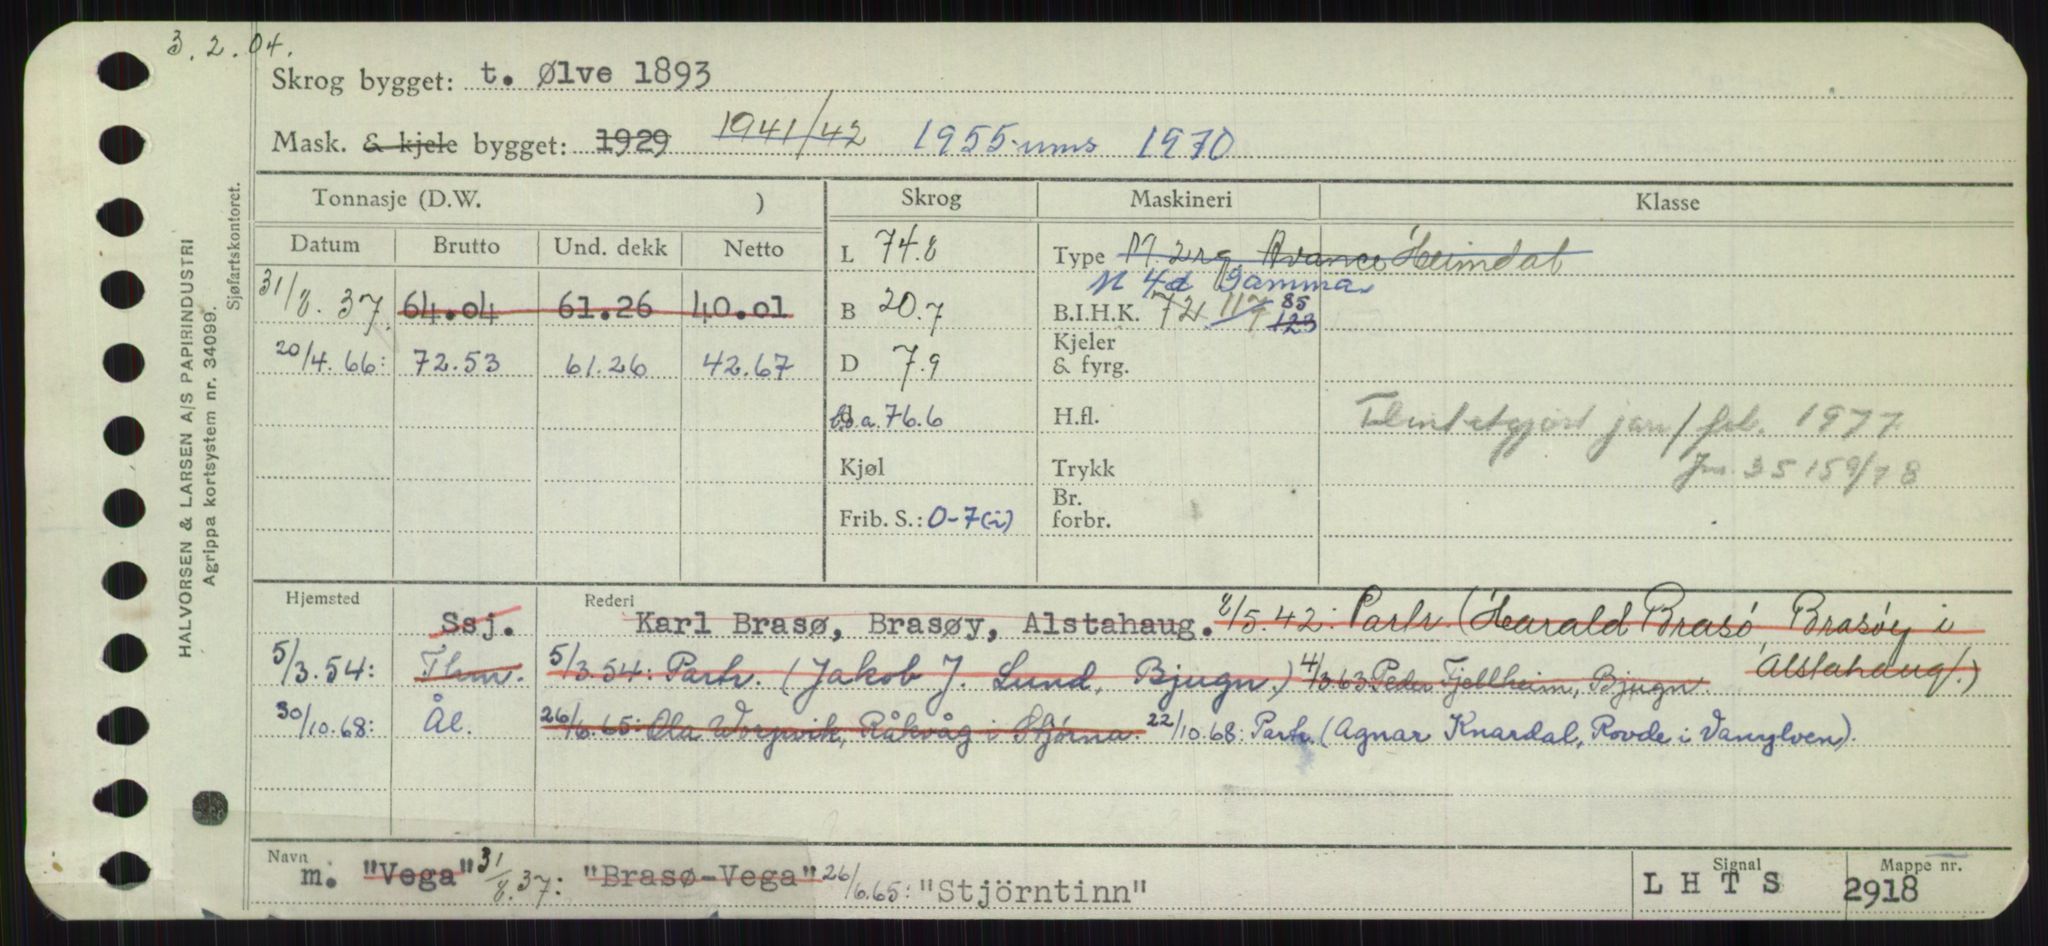 3.2.04.
Skrog bygget: t. Ølve 1893
Mask. & kjele bygget: 1929 1941/42 1955 ums 1970
HALVORSEN & LARSEN A/S PAPIRINDUSTRI
Agrippa kortsystem nr. 34099.
Sjøfartskontoret.
Tonnasje (D.W. ) Skrog Maskineri Klasse
Datum Brutto Und. dekk Netto
L 74.8 Type M. 2rg. Avance Heimdal
M 4d Gamma
31/8.37 64.04 61.26 40.01 B 20.7 B.I.H.K. 72 117 123 85
20/4.66: 72.53 61.26 42.67 D 7.9 Kjeler & fyrg.
l.o.a. 76.6 H.fl.
jan/feb. 1977
Kjøl Trykk
Jnr. 35159/78
Frib. S.: 0-7(i) Br. forbr.
Hjemsted Rederi
Ssj. Karl Brasø, Brasøy, Alstahaug. 8/5.42: Partr. (Harald Brasö, Brasöy i Alstahaug.)
5/3.54: Thm. 5/3.54: Partr. (Jakob J. Lund, Bjugn.) 4/3.63 Peder Fjellheim, Bjugn.
30/10.68: Ål. 26/6.65: Ola Worpvik, Råkvåg i Stjørna. 22/10.68: Partr. (Agnar Knardal, Rovde i Vanylven).
Navn Signal Mappe nr.
m. "Vega" 31/8.37: "Brasø-Vega" 26/6.65: "Stjörntinn" LHTS 2918